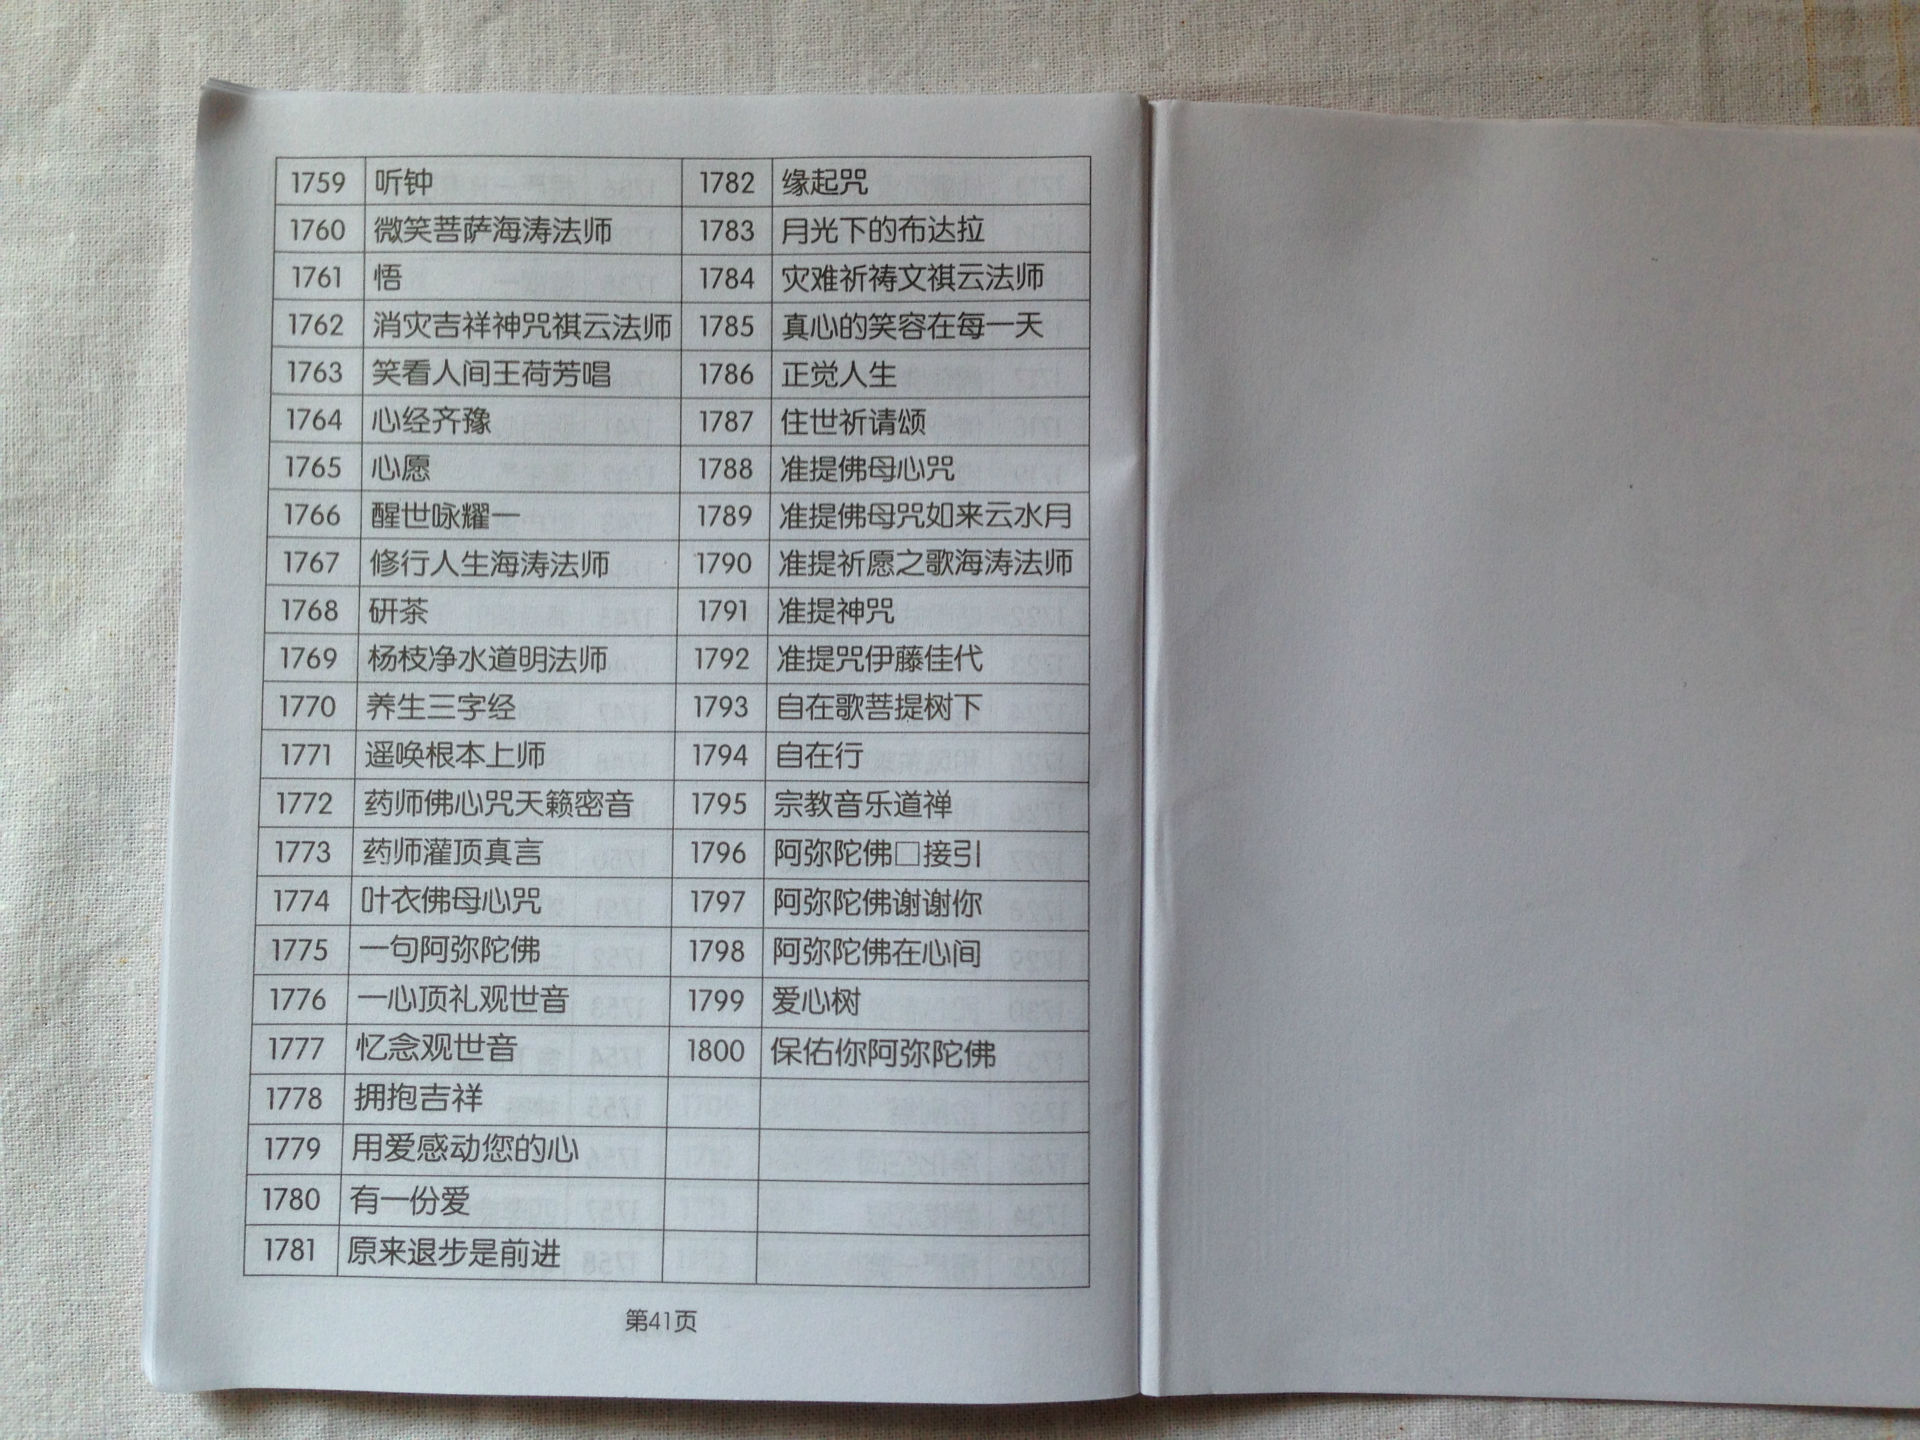 1759 听钟 1782 缘起咒
1760 微笑菩萨海涛法师 1783 月光下的布达拉
1761 悟 1784 灾难祈祷文祺云法师
1762 消灾吉祥神咒祺云法师 1785 真心的笑容在每一天
1763 笑看人间王荷芳唱 1786 正觉人生
1764 心经齐豫 1787 住世祈请颂
1765 心愿 1788 准提佛母心咒
1766 醒世咏耀一 1789 准提佛母咒如来云水月
1767 修行人生海涛法师 1790 准提祈愿之歌海涛法师
1768 研茶 1791 准提神咒
1769 杨枝净水道明法师 1792 准提咒伊藤佳代
1770 养生三字经 1793 自在歌菩提树下
1771 遥唤根本上师 1794 自在行
1772 药师佛心咒天籁密音 1795 宗教音乐道禅
1773 药师灌顶真言 1796 阿弥陀佛□接引
1774 叶衣佛母心咒 1797 阿弥陀佛谢谢你
1775 一句阿弥陀佛 1798 阿弥陀佛在心间
1776 一心顶礼观世音 1799 爱心树
1777 忆念观世音 1800 保佑你阿弥陀佛
1778 拥抱吉祥
1779 用爱感动您的心
1780 有一份爱
1781 原来退步是前进
第41页